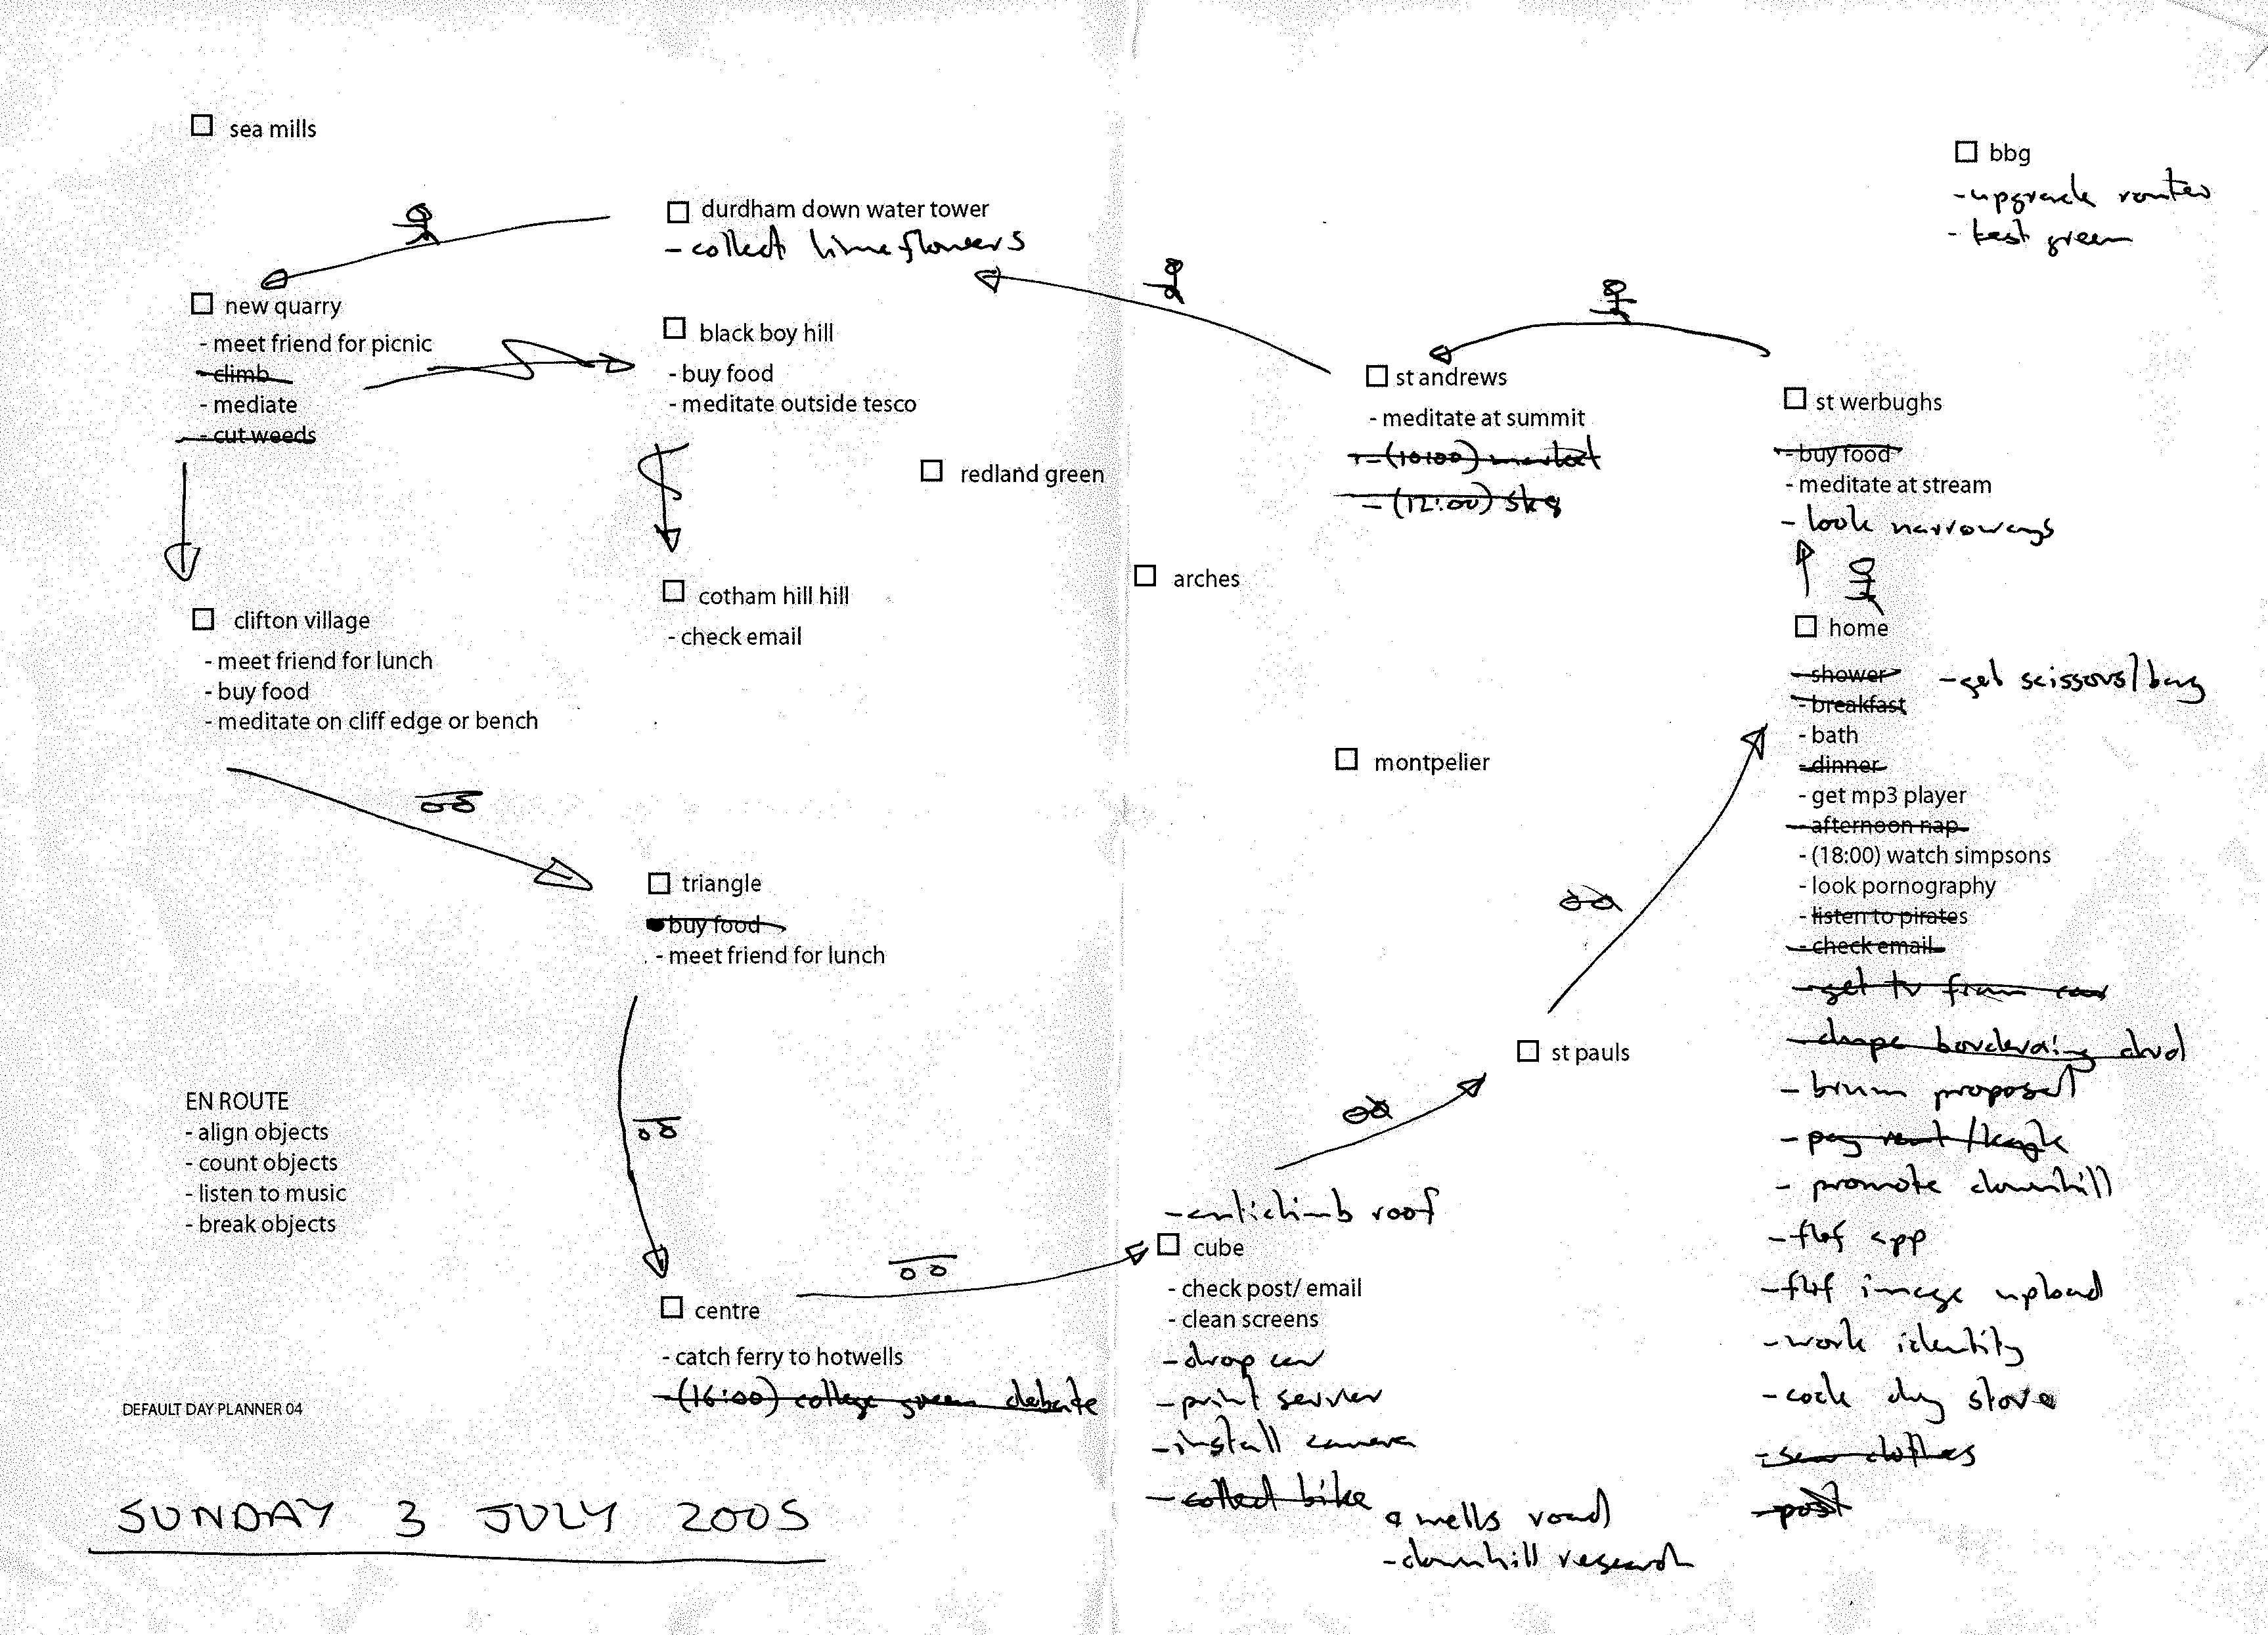 sea mills
bbg
-upgrade router
- test green
durdham down water tower
- collect lime flowers
new quarry
- meet friend for picnic
- climb
- mediate
- cut weeds
black boy hill
- buy food
- meditate outside tesco
st andrews
- meditate at summit
- (10:00) market
- (12:00)
st werbughs
- buy food
- meditate at stream
- look narroways
redland green
arches
clifton village
- meet friend for lunch
- buy food
- meditate on cliff edge or bench
cotham hill hill
- check email
home
- shower
- get scissors/bag
- breakfast
- bath
- dinner
- get mp3 player
- afternoon nap
- (18:00) watch simpsons
- look pornography
- listen to pirates
- check email
- get tv from car
- dvd
- brum proposal
- pay rent /
- promote downhill
- flof app
- flof image upload
- work identity
- cock dug stove
- sew clothes
- post
montpelier
triangle
buy food
- meet friend for lunch
st pauls
EN ROUTE
- align objects
- count objects
- listen to music
- break objects
-anticlimb roof
cube
- check post/ email
- clean screens
- drop car
- print server
- install camera
- collect bike
centre
- catch ferry to hotwells
- (16:00) college green debate
wells road
-downhill research
DEFAULT DAY PLANNER 04
SUNDAY 3 JULY 2005